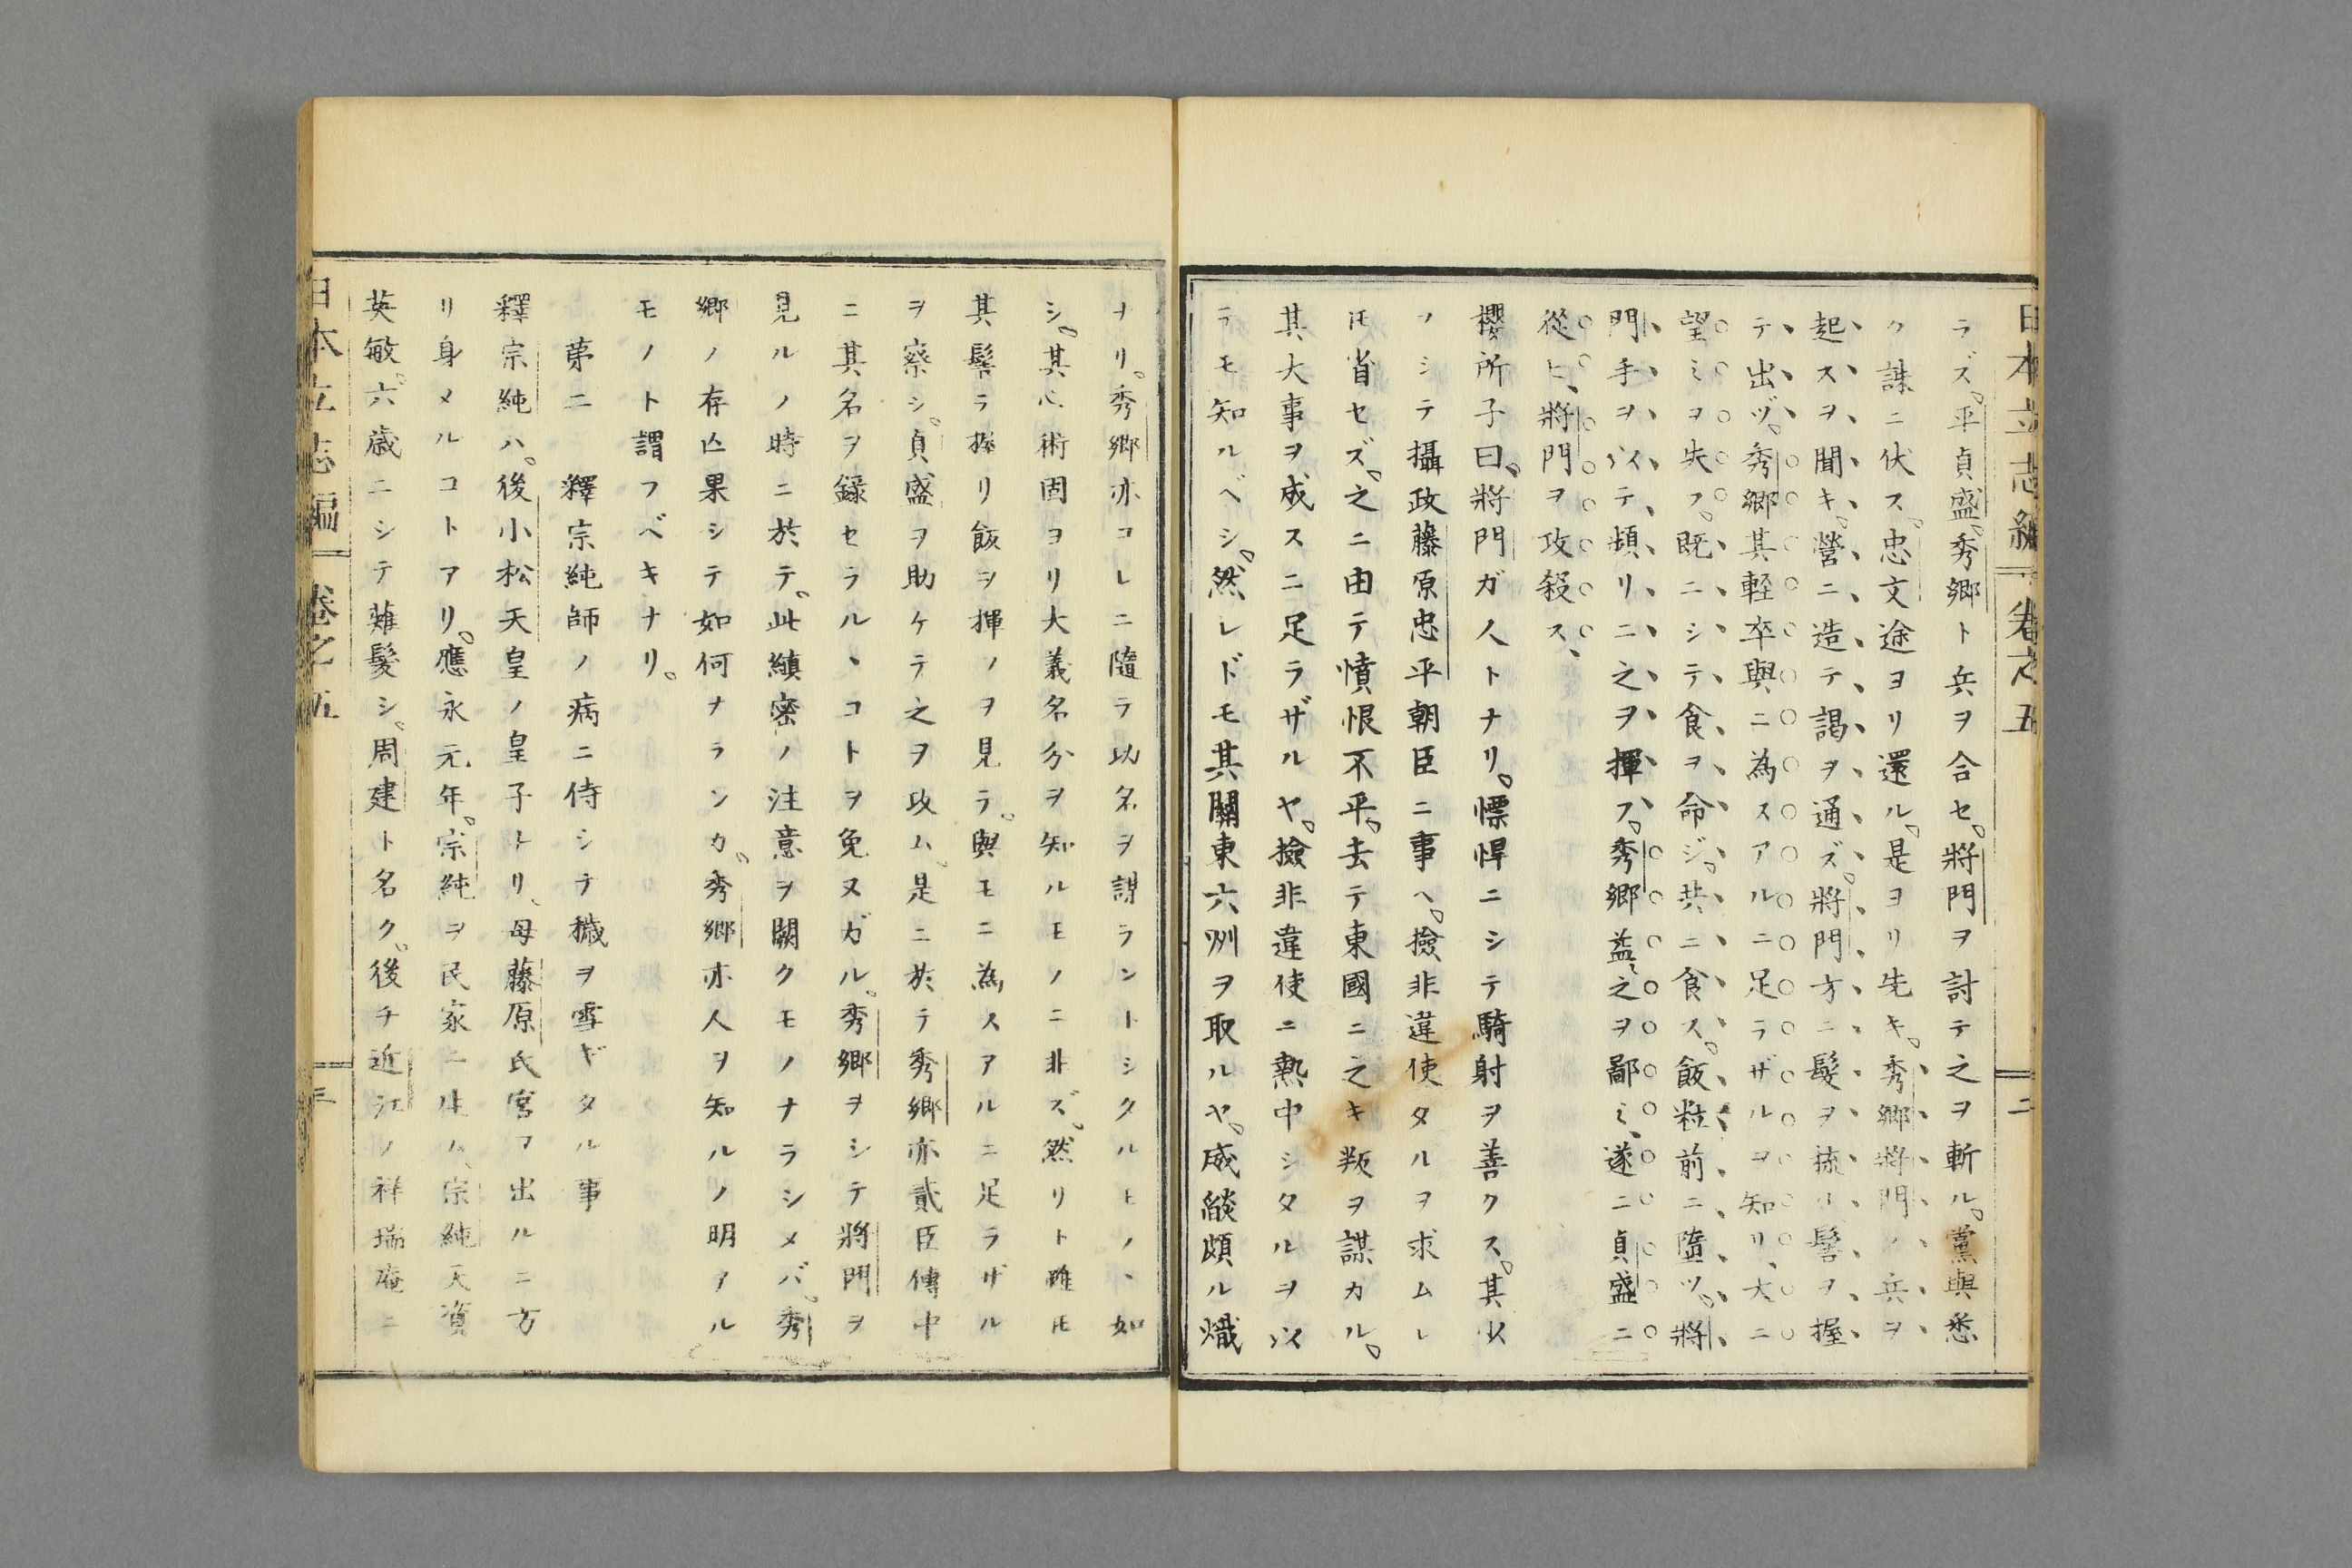 日本立志編 卷之五 二
ラズ。平貞盛。秀郷ト兵ヲ合セ。將門ヲ討テ之ヲ斬ル。黨與悉
ク誅ニ伏ス。忠文途ヨリ還ル。是ヨリ先キ。秀郷將門ノ兵ヲ
起スヲ聞キ。營ニ造テ謁ヲ通ズ。將門方ニ髮ヲ梳ル髻ヲ握
テ出ヅ。秀郷其輕卒與ニ為スアルニ足ラザルヲ知リ、大ニ
望ミヲ失フ。既ニシテ食ヲ命ジ。共ニ食ス。飯粒前ニ墮ツ。將
門手ヲ以テ頻リニ之ヲ揮フ。秀郷益〻之ヲ鄙ミ、遂ニ貞盛ニ
從ヒ、將門ヲ攻殺ス、
櫻所子曰。將門ガ人トナリ。慓悍ニシテ騎射ヲ善クス。其少
フシテ攝政藤原忠平朝臣ニ事ヘ。撿非違使タルヲ求ムレ
𪜈省セズ。之ニ由テ憤恨不平。去テ東國ニ之キ叛ヲ謀カル。
其大事ヲ成スニ足ラザルヤ。撿非違使ニ熱中シタルヲ以
テモ知ルベシ。然レドモ其關東六州ヲ取ルヤ。威燄頗ル熾
ナリ。秀郷亦コレニ隨ヲ功名ヲ謀ラントシタルモノヽ如
シ。其心術固ヨリ大義名分ヲ知ルモノニ非ズ。然リト雖𪜈
其髻ヲ握リ飯ヲ揮ノヲ見ラ。與モニ為スアルニ足ラザル
ヲ察シ。貞盛ヲ助ケテ之ヲ攻ム。是ニ於テ秀郷亦貳臣傳中
ニ其名ヲ録セラルヽコトヲ免ヌガル。秀郷ヲシテ將門ヲ
見ルノ時ニ於テ。此縝密ノ注意ヲ闕クモノナラシメバ。秀
郷ノ存亡果シテ如何ナランカ。秀郷亦人ヲ知ルノ明アル
モノト謂フベキナリ。
第二 釋宗純師ノ病ニ侍シテ穢ヲ雪ギタル事
釋宗純ハ。後小松天皇ノ皇子トリ、母藤原氏宮ヲ出ルニ方
リ身メルコトアリ。應永元年。宗純ヲ民家ニ生ム、宗純天資
英敏。六歳ニシテ薙髮シ。周建ト名ク。後チ近江ノ祥瑞庵ニ
日本立志編 卷之五 三